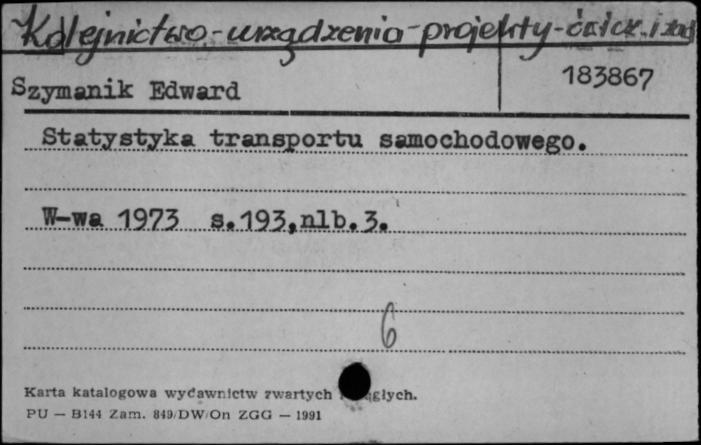 Kolejnictwo - urządzenia - projekty - ćwicz. i zad
183867
Szymanik Edward
Statystyka transportu samochodowego.
W-wa 1973 s.193,nlb.3.
6
Karta katalogowa wydawnictw zwartych i ciągłych.
PU — B144 Zam. 849/DW/On ZGG — 1991